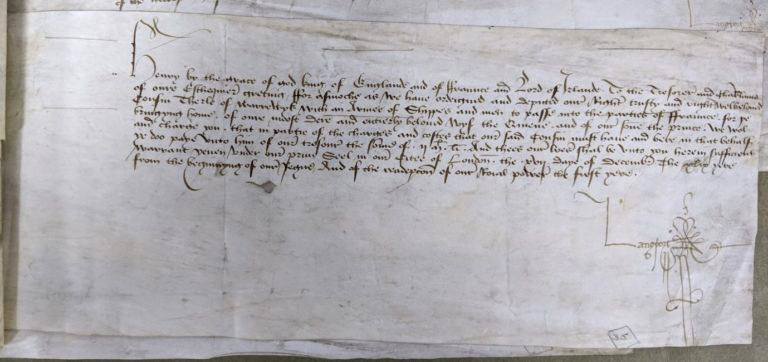 of the
Henry by the grace of god king of Englande and of Ffraunce and Lord of Irlande To the Tresorer and Chambreleins
of oure Eschequier greting Fforasmuche as we have ordeigned and deputed oure Right trusty and right welbeloved
Cousin Therle of Warrewyk with an Armee of Shippes and men to passe unto the parties of Ffraunce for the
bringing home of oure moost dere and entierly beloved Wyf the Quene and of our Sone the prince. We wol
and charge you that in partie of the charges and costes that our said Cousin must have and bere in that behalf
ye do paie unto him of our tresour the some of . ij m li. And thees our lettres shal be unto you herein sufficient
warrant. Yeven under our prive Seel in our Citee of London the day of Decembre The yere
from the begynnyng of our Regne. And of the readepcion of our Roial power the first yere.
Langport
35